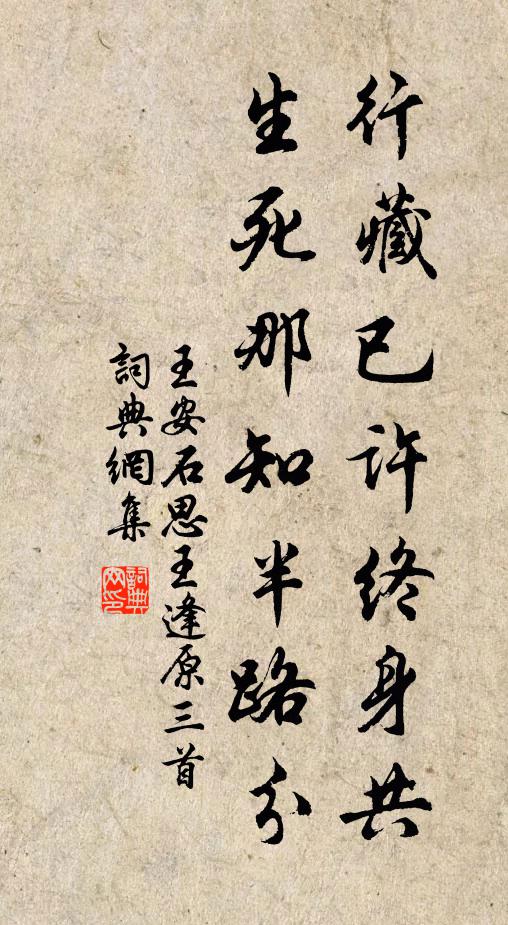 行藏已許終身共
生死那知半路分
王安石思王逢原三首
詞典網集
詞典
网印